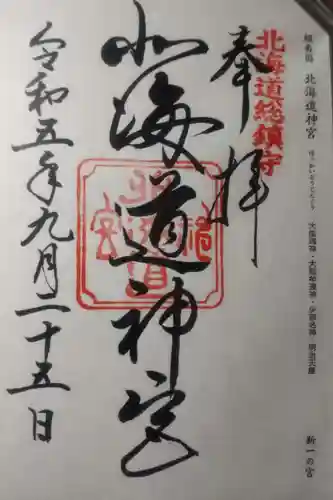 蝦夷国 北海道神宮 ほっかいどうじんぐう 大国魂神・大那牟遅神・少彦名神 明治天皇 新一の宮
北海道総鎮守
奉拝
北海道神宮
令和五年九月二十五日